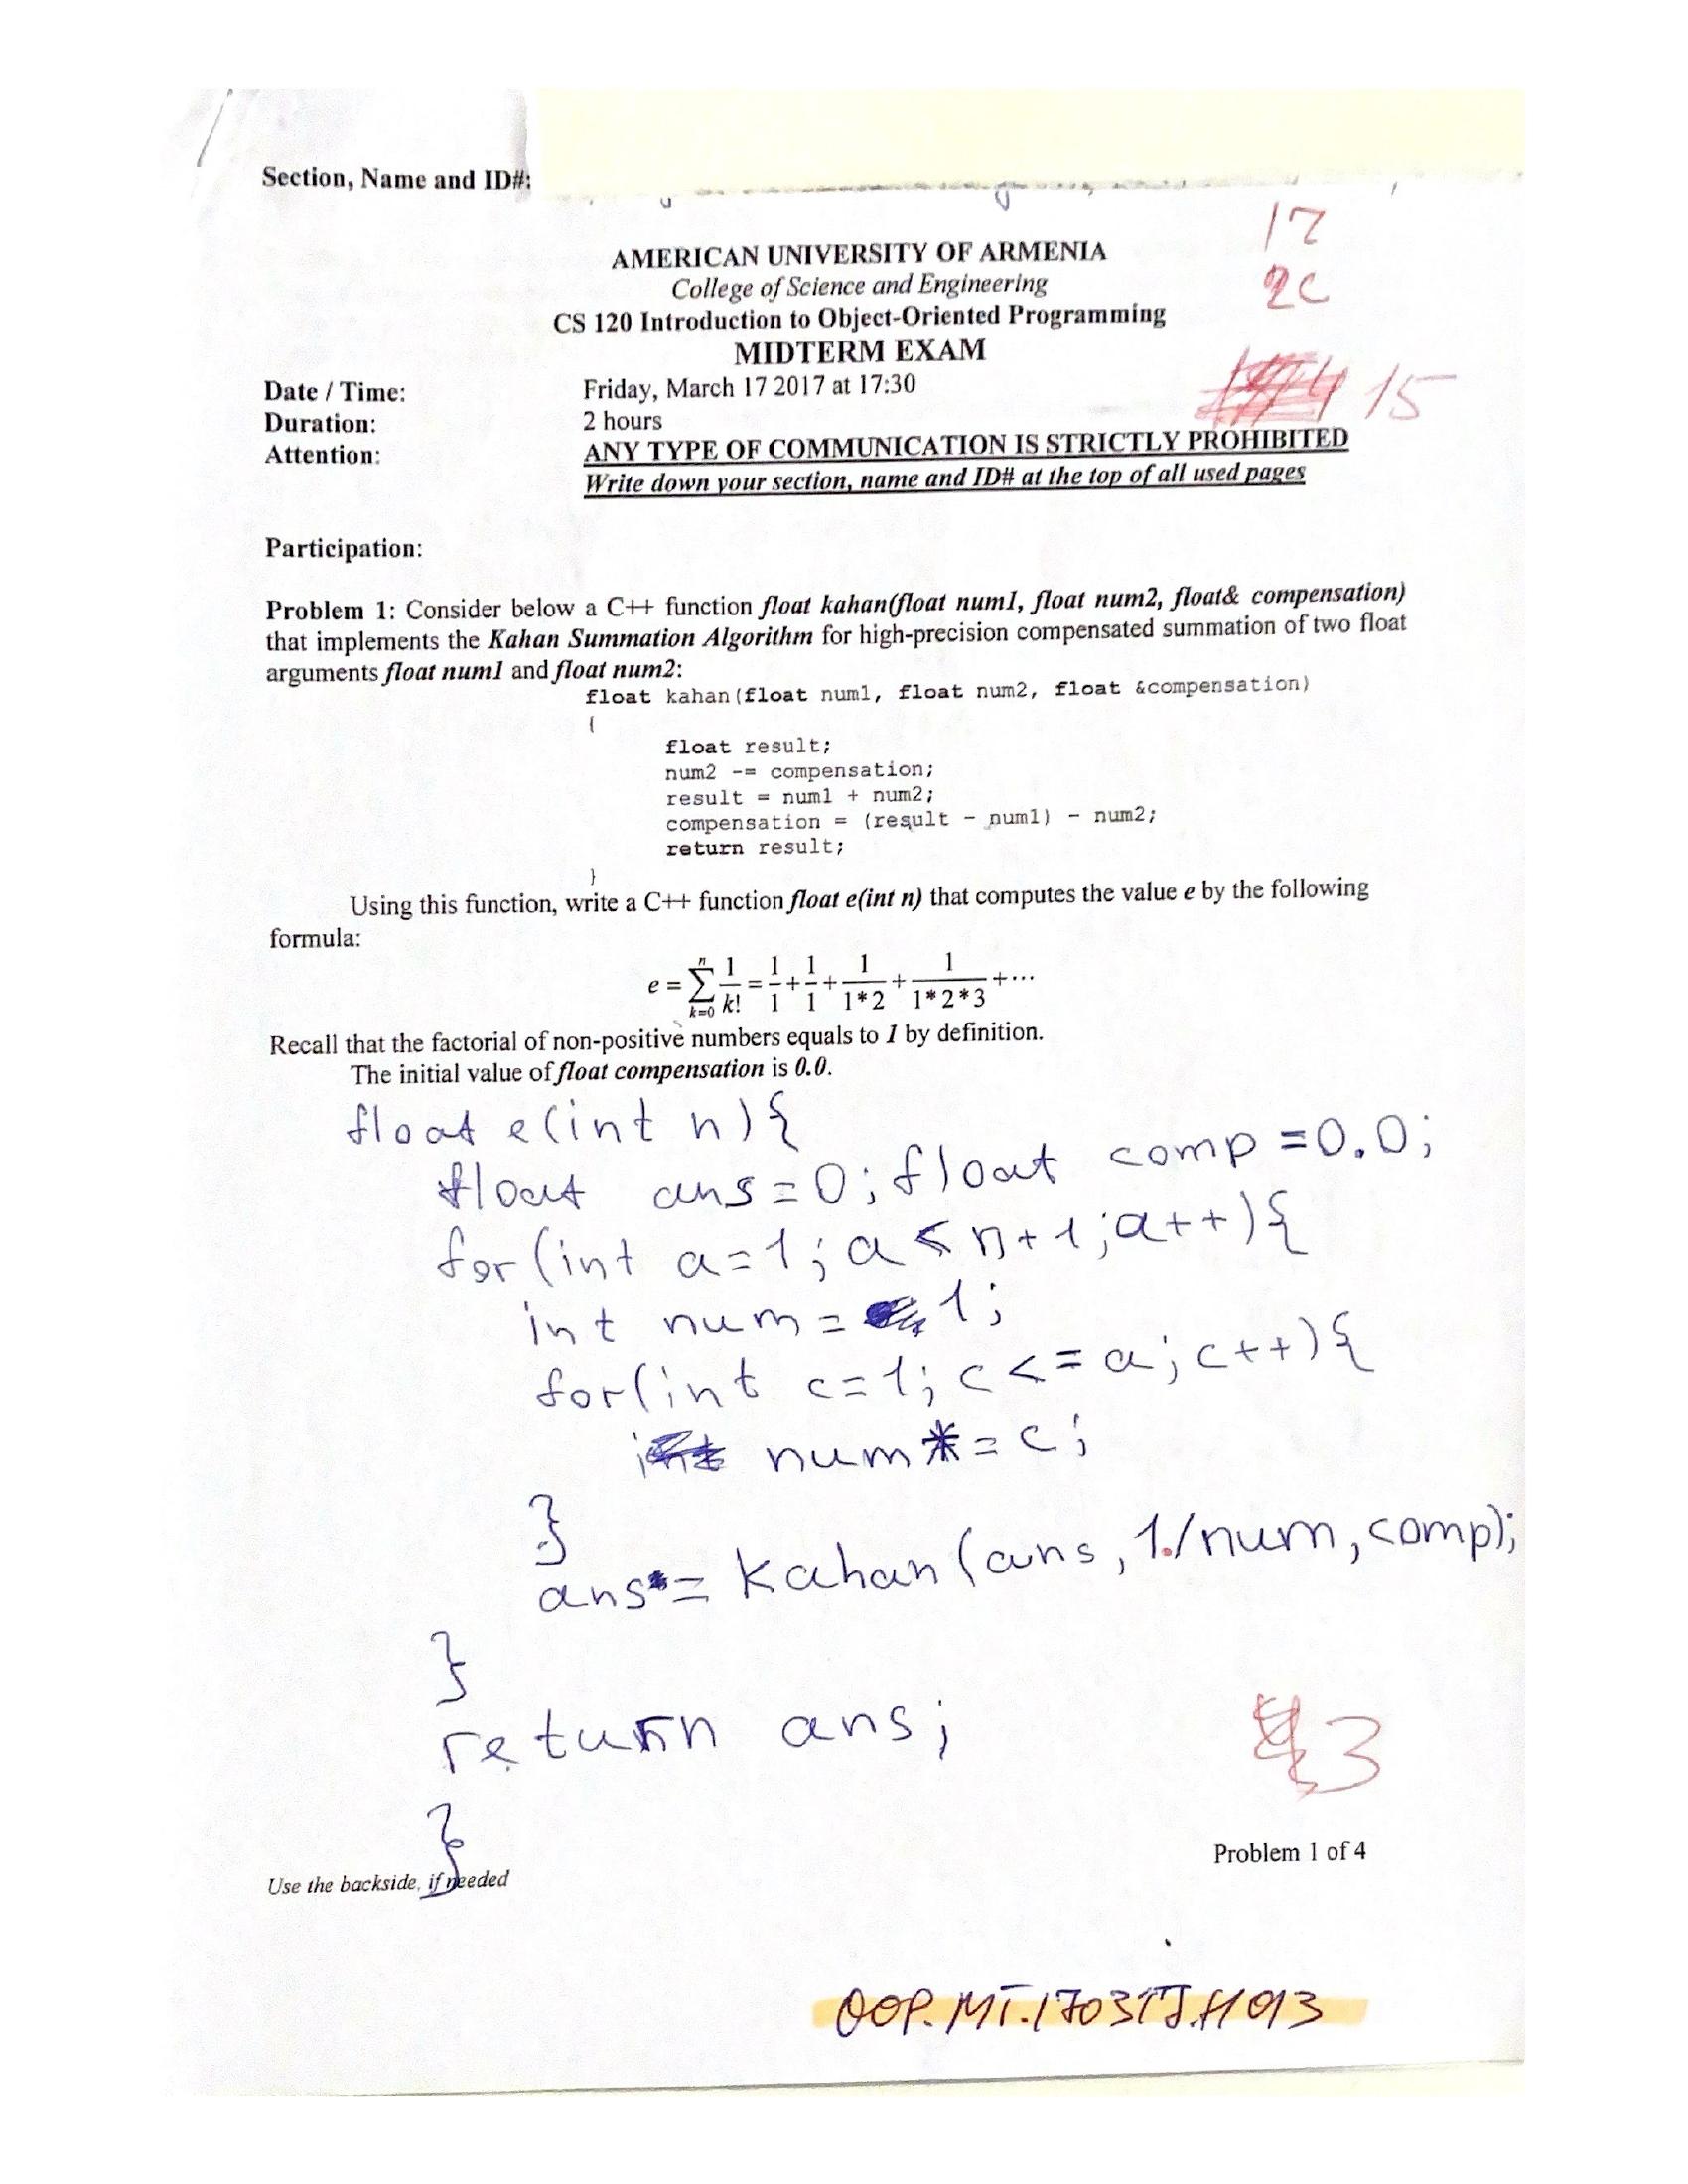 Section, Name and ID#:
17
20
AMERICAN UNIVERSITY OF ARMENIA
College of Science and Engineering
CS 120 Introduction to Object-Oriented Programming
MIDTERM EXAM
15
Date / Time: Friday, March 17 2017 at 17:30
Duration: 2 hours
Attention: ANY TYPE OF COMMUNICATION IS STRICTLY PROHIBITED
Write down your section, name and ID# at the top of all used pages
Participation:
Problem 1: Consider below a C++ function float kahan(float num1, float num2, float& compensation)
that implements the Kahan Summation Algorithm for high-precision compensated summation of two float
arguments float num1 and float num2:
float kahan(float num1, float num2, float &compensation)
{
float result;
num2 -= compensation;
result = num1 + num2;
compensation = (result - num1) - num2;
return result;
}
Using this function, write a C++ function float e(int n) that computes the value e by the following
formula:
e = ∑_{k=0}^{n} 1/k! = 1/1 + 1/1 + 1/(1*2) + 1/(1*2*3) + ...
Recall that the factorial of non-positive numbers equals to 1 by definition.
The initial value of float compensation is 0.0.
float e(int n){
float ans=0; float comp=0.0;
for(int a=1; a < n+1; a++){
int num = 1;
for(int c=1; c<=a; c++){
num*=c;
}
ans = kahan(ans, 1./num, comp);
}
return ans;
}
3
Problem 1 of 4
Use the backside, if needed